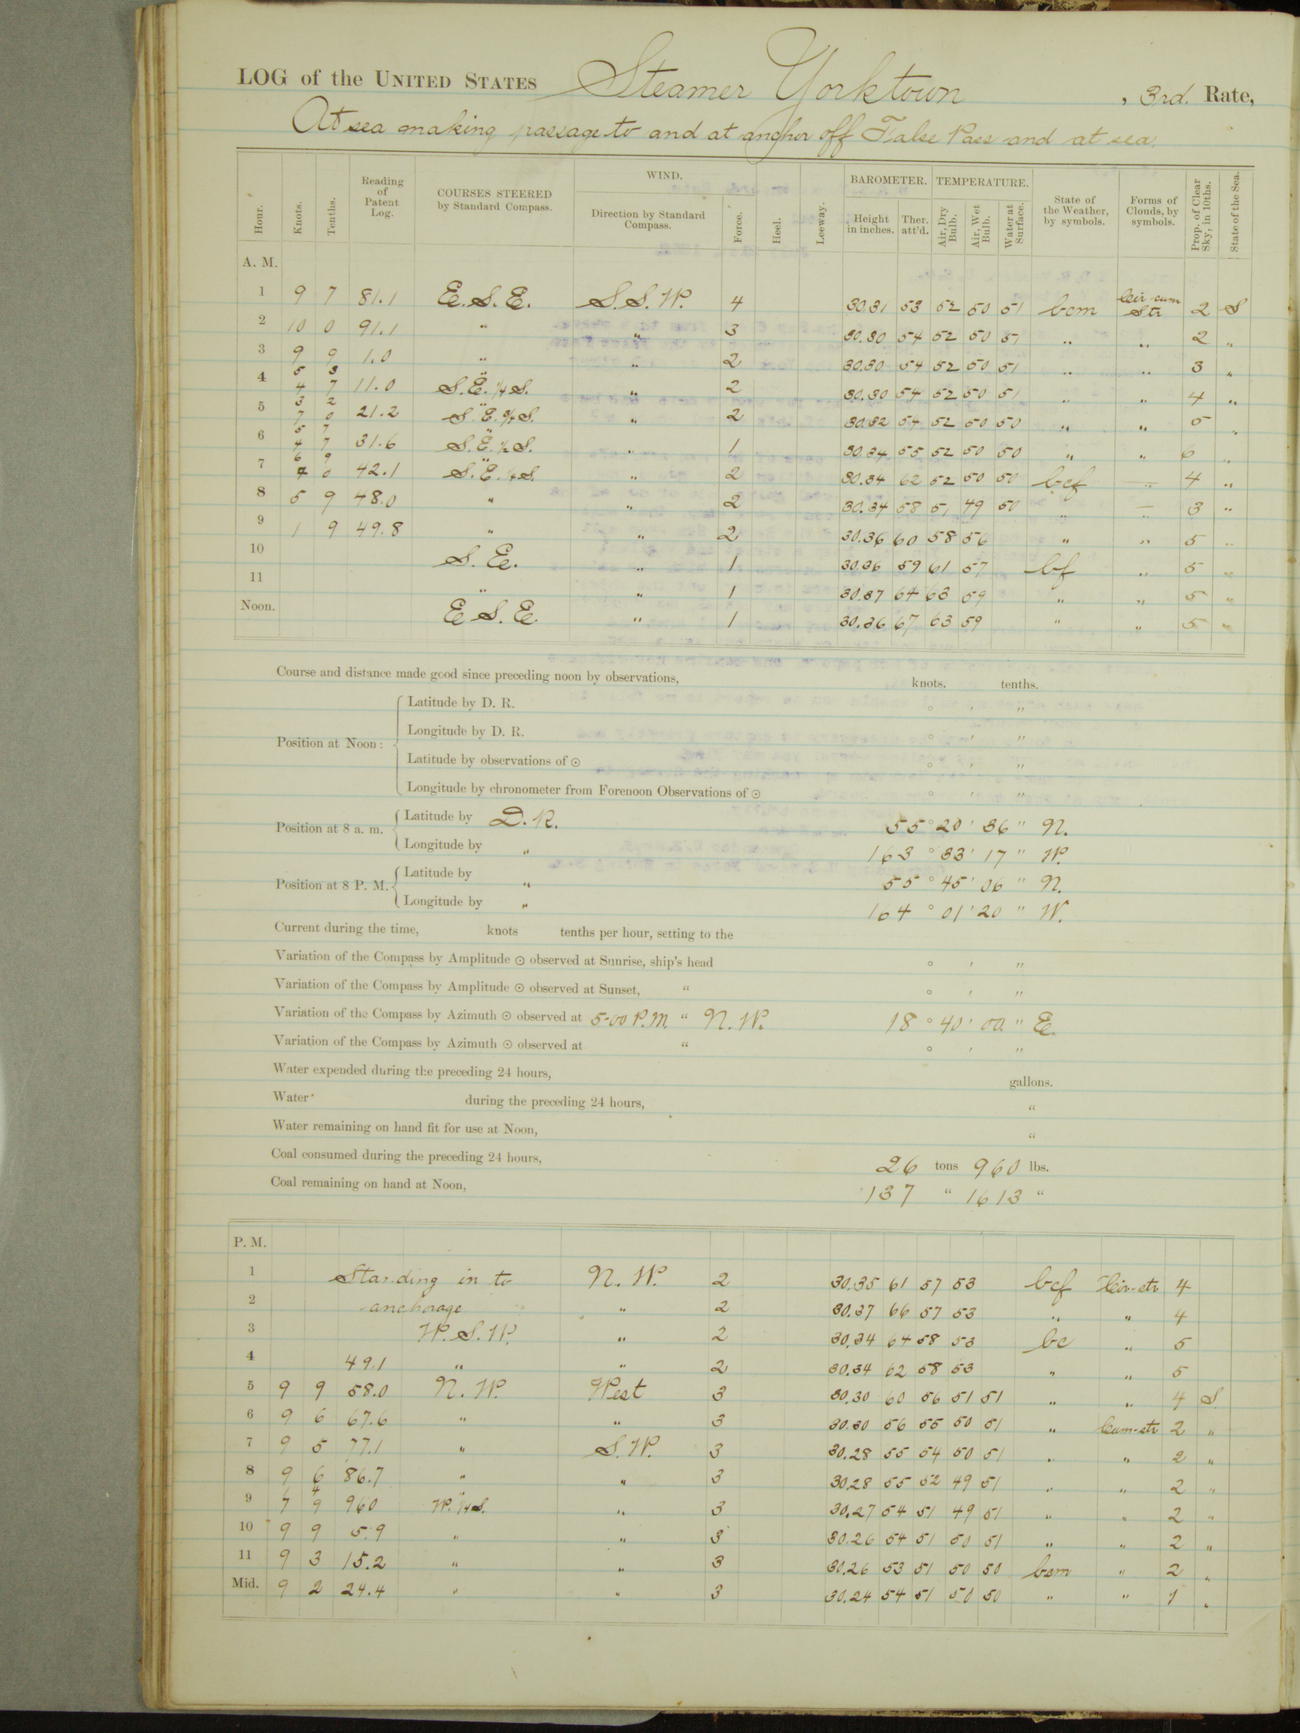 LOG of the UNITED STATES Steamer Yorktown , 3rd. Rate,
At sea making passage to and at anchor off False Pass and at sea.
Hour. Knots. Tenths. Reading of Patent Log. COURSES STEERED by Standard Compass. WIND. Direction by Standard Compass. Force. Heel. Leeway. BAROMETER. Height in inches. Ther. att'd. TEMPERATURE. Air, Dry Bulb. Air, Wet Bulb. Water at Surface. State of the Weather, by symbols. Forms of Clouds, by symbols. Prop. of Clear Sky, in 10ths. State of the Sea.
A. M.
1 9 7 81.1 E. S. E. S. S. W. 4 30.31 53 52 50 51 bcm Cir-cum Str 2 S
2 10 0 91.1 " " 3 30.30 54 52 50 51 " " 2 "
3 9 9 1.0 " " 2 30.30 54 52 50 51 " " 3 "
4 5 3 4 7 11.0 " S. E. 1/4 S. " 2 30.30 54 52 50 51 " " 4 "
5 3 2 7 0 21.2 " S. E. 3/4 S. " 2 30.32 54 52 50 50 " " 5 "
6 5 7 4 7 31.6 " S. E. 1/2 S. " 1 30.34 55 52 50 50 " " 6 "
7 6 9 4 0 42.1 " S. E. 1/4 S. " 2 30.34 62 52 50 50 bcf " 4 "
8 5 9 48.0 " " 2 30.34 58 51 49 50 " " 3 "
9 1 9 49.8 " " 2 30.36 60 58 56 " " 5 "
10 S. E. " 1 30.36 59 61 57 bf " 5 "
11 " " 1 30.37 64 63 59 " " 5 "
Noon. E. S. E. " 1 30.36 67 63 59 " " 5 "
Course and distance made good since preceding noon by observations, knots. tenths.
Position at Noon: Latitude by D. R. ° ' "
Longitude by D. R. ° ' "
Latitude by observations of ☉ ° ' "
Longitude by chronometer from Forenoon Observations of ☉ ° ' "
Position at 8 a. m. Latitude by D. R. 55 ° 20 ' 36 " N.
Longitude by " 163 ° 33 ' 17 " W.
Position at 8 P. M. Latitude by " 55 ° 45 ' 06 " N.
Longitude by " 164 ° 01 ' 20 " W.
Current during the time, knots tenths per hour, setting to the
Variation of the Compass by Amplitude ☉ observed at Sunrise, ship's head ° ' "
Variation of the Compass by Amplitude ☉ observed at Sunset, " ° ' "
Variation of the Compass by Azimuth ☉ observed at 5-00 P.M " N. W. 18 ° 40 ' 00 " E.
Variation of the Compass by Azimuth ☉ observed at " ° ' "
Water expended during the preceding 24 hours, gallons.
Water during the preceding 24 hours, "
Water remaining on hand fit for use at Noon, "
Coal consumed during the preceding 24 hours, 26 tons 960 lbs.
Coal remaining on hand at Noon, 137 " 1613 "
P. M.
1 Standing in to N. W. 2 30.35 61 57 53 bcf Cir-str 4
2 anchorage " 2 30.37 66 57 53 " " 4
3 W. S. W. " 2 30.34 64 58 53 bc " 5
4 49.1 " " 2 30.34 62 58 53 " " 5
5 9 9 58.0 N. W. West 3 30.30 60 56 51 51 " " 4 S.
6 9 6 67.6 " " 3 30.30 56 55 50 51 " Cum-str 2 "
7 9 5 77.1 " S. W. 3 30.28 55 54 50 51 " " 2 "
8 9 6 86.7 " " 3 30.28 55 52 49 51 " " 2 "
9 1 4 7 9 960 " W. 1/4 S. " 3 30.27 54 51 49 51 " " 2 "
10 9 9 5.9 " " 3 30.26 54 51 50 51 " " 2 "
11 9 3 15.2 " " 3 30.26 53 51 50 50 bcm " 2 "
Mid. 9 2 24.4 " " 3 30.24 54 51 50 50 " " 1 "